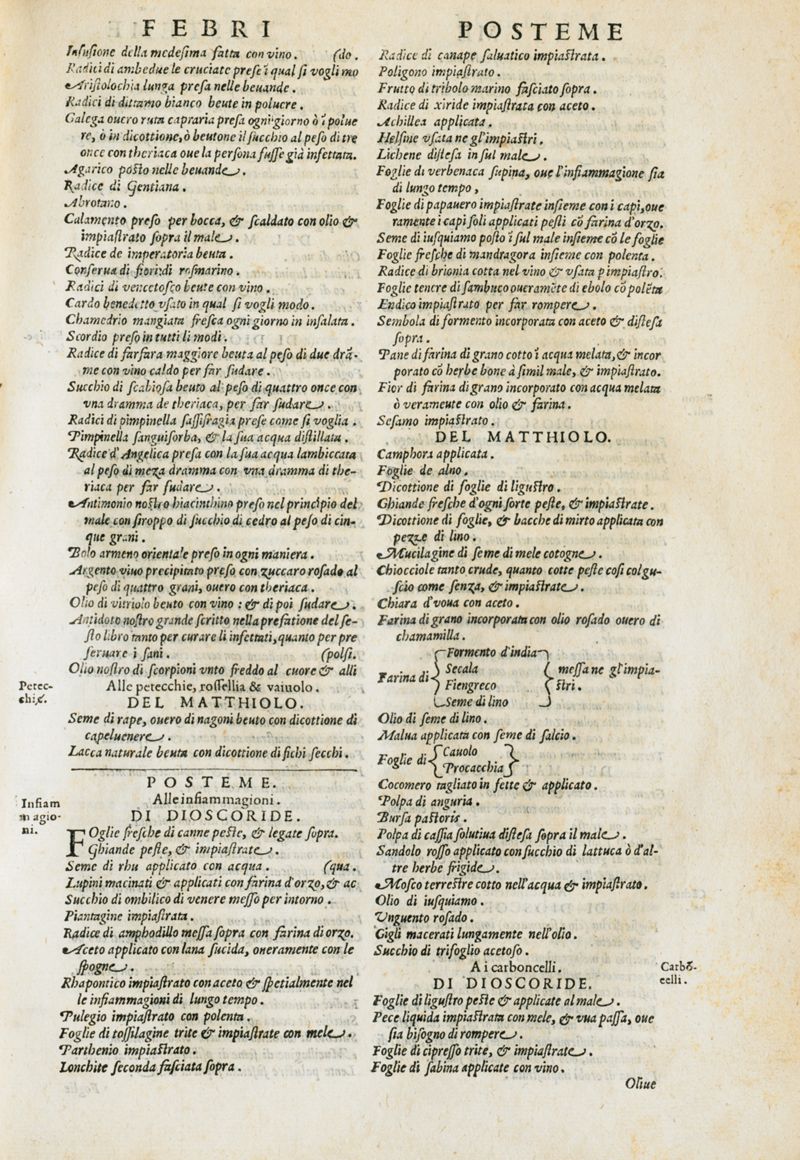 FEBRI
Infusione della medesima fatta con vino. (do.
Radici di ambedue le cruciate prese ī qual si vogli mo
Aristolochia lunga presa nelle beuande.
Radici di dittamo bianco beute in poluere.
Galega ouero ruta capraria presa ogni giorno ò ī polue
re, ò in dicottione, ò beutone il succhio al peso di tre
once con theriaca oue la persona fusse già infettata.
Agarico posto nelle beuande.
Radice di Gentiana.
Abrotano.
Calamento preso per bocca, & scaldato con olio &
impiastrato sopra il male.
Radice de imperatoria beuta.
Conserua di fiori di rosmarino.
Radici di vencetosco beute con vino.
Cardo benedetto vsato in qual si vogli modo.
Chamedrio mangiata fresca ogni giorno in insalata.
Scordio preso in tutti li modi.
Radice di farfara maggiore beuta al peso di due drā-
me con vino caldo per far sudare.
Succhio di scabiosa beuto al peso di quattro once con
vna dramma de theriaca, per far sudare.
Radici di pimpinella sassifragia prese come si voglia.
Pimpinella sanguisorba, & la sua acqua distillata.
Radice d'Angelica presa con la sua acqua lambiccata
al peso di meza dramma con vna dramma di the-
riaca per far sudare.
Antimonio nostro hiacinthino preso nel principio del
male con siroppo di succhio di cedro al peso di cin-
que grani.
Bolo armeno orientale preso in ogni maniera.
Argento viuo precipitato preso con zuccaro rosado al
peso di quattro grani, ouero con theriaca.
Olio di vitriolo beuto con vino: & di poi sudare.
Antidoto nostro grande scritto nella prefatione del se-
sto libro tanto per curare li infettati, quanto per pre
seruare i sani. (polsi.
Olio nostro di scorpioni vnto freddo al cuore & alli
Petec-
chie.
Alle petecchie, rossellia & vaiuolo.
DEL MATTHIOLO.
Seme di rape, ouero di nagoni beuto con dicottione di
capeluenere.
Lacca naturale beuta con dicottione di fichi secchi.
POSTEME.
Infiam
magio-
ni.
Alle infiammagioni.
DI DIOSCORIDE.
FOglie fresche di canne peste, & legate sopra.
Ghiande peste, & impiastrate.
Seme di rhu applicato con acqua. (qua.
Lupini macinati & applicati con farina d'orzo, & ac
Succhio di ombilico di venere messo per intorno.
Piantagine impiastrata.
Radice di amphodillo messa sopra con farina di orzo.
Aceto applicato con lana sucida, oueramente con le
spogne.
Rhapontico impiastrato con aceto & spetialmente nel
le infiammagioni di lungo tempo.
Pulegio impiastrato con polenta.
Foglie di tossilagine trite & impiastrate con mele.
Parthenio impiastrato.
Lonchite seconda fasciata sopra.
POSTEME
Radice di canape saluatico impiastrata.
Poligono impiastrato.
Frutto di tribolo marino fasciato sopra.
Radice di xiride impiastrata con aceto.
Achillea applicata.
Helsine vsata ne gl'impiastri.
Lichene distesa in sul male.
Foglie di verbenaca supina, oue l'infiammagione sia
di lungo tempo,
Foglie di papauero impiastrate insieme con i capi, oue
ramente i capi soli applicati pesti cō farina d'orzo.
Seme di iusquiamo posto ī sul male insieme cō le foglie
Foglie fresche di mandragora insieme con polenta.
Radice di brionia cotta nel vino & vsata p impiastro.
Foglie tenere di sambuco oueramēte di ebolo cō polēta
Endico impiastrato per far rompere.
Sembola di formento incorporata con aceto & distesa
sopra.
Pane di farina di grano cotto ī acqua melata, & incor
porato cō herbe bone à simil male, & impiastrato.
Fior di farina di grano incorporato con acqua melata
ò veramente con olio & farina.
Sesamo impiastrato.
DEL MATTHIOLO.
Camphora applicata.
Foglie de alno.
Dicottione di foglie di ligustro.
Ghiande fresche d'ogni sorte peste, & impiastrate.
Dicottione di foglie, & bacche di mirto applicata con
pezze di lino.
Mucilagine di seme di mele cotogne.
Chiocciole tanto crude, quanto cotte peste cosi col gu-
scio come senza, & impiastrate.
Chiara d'voua con aceto.
Farina di grano incorporata con olio rosado ouero di
chamamilla.
Farina di { Formento d'india
Secala
Fiengreco
Seme di lino } messa ne gl'impia-
stri.
Olio di seme di lino.
Malua applicata con seme di salcio.
Foglie di { Cauolo
Procacchia }
Cocomero tagliato in fette & applicato.
Polpa di anguria.
Bursa pastoris.
Polpa di cassia solutiua distesa sopra il male.
Sandolo rosso applicato con succhio di lattuca ò d'al-
tre herbe frigide.
Mosco terrestre cotto nell'acqua & impiastrato.
Olio di iusquiamo.
Vnguento rosado.
Gigli macerati lungamente nell'olio.
Succhio di trifoglio acetoso.
Carbō-
celli.
A i carboncelli.
DI DIOSCORIDE.
Foglie di ligustro peste & applicate al male.
Pece liquida impiastrata con mele, & vua passa, oue
sia bisogno di rompere.
Foglie di cipresso trite, & impiastrate.
Foglie di sabina applicate con vino.
Oliue